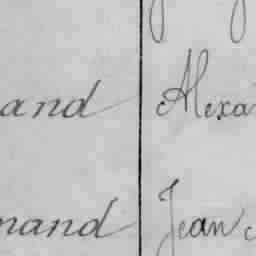 and Alexa
mand Jean